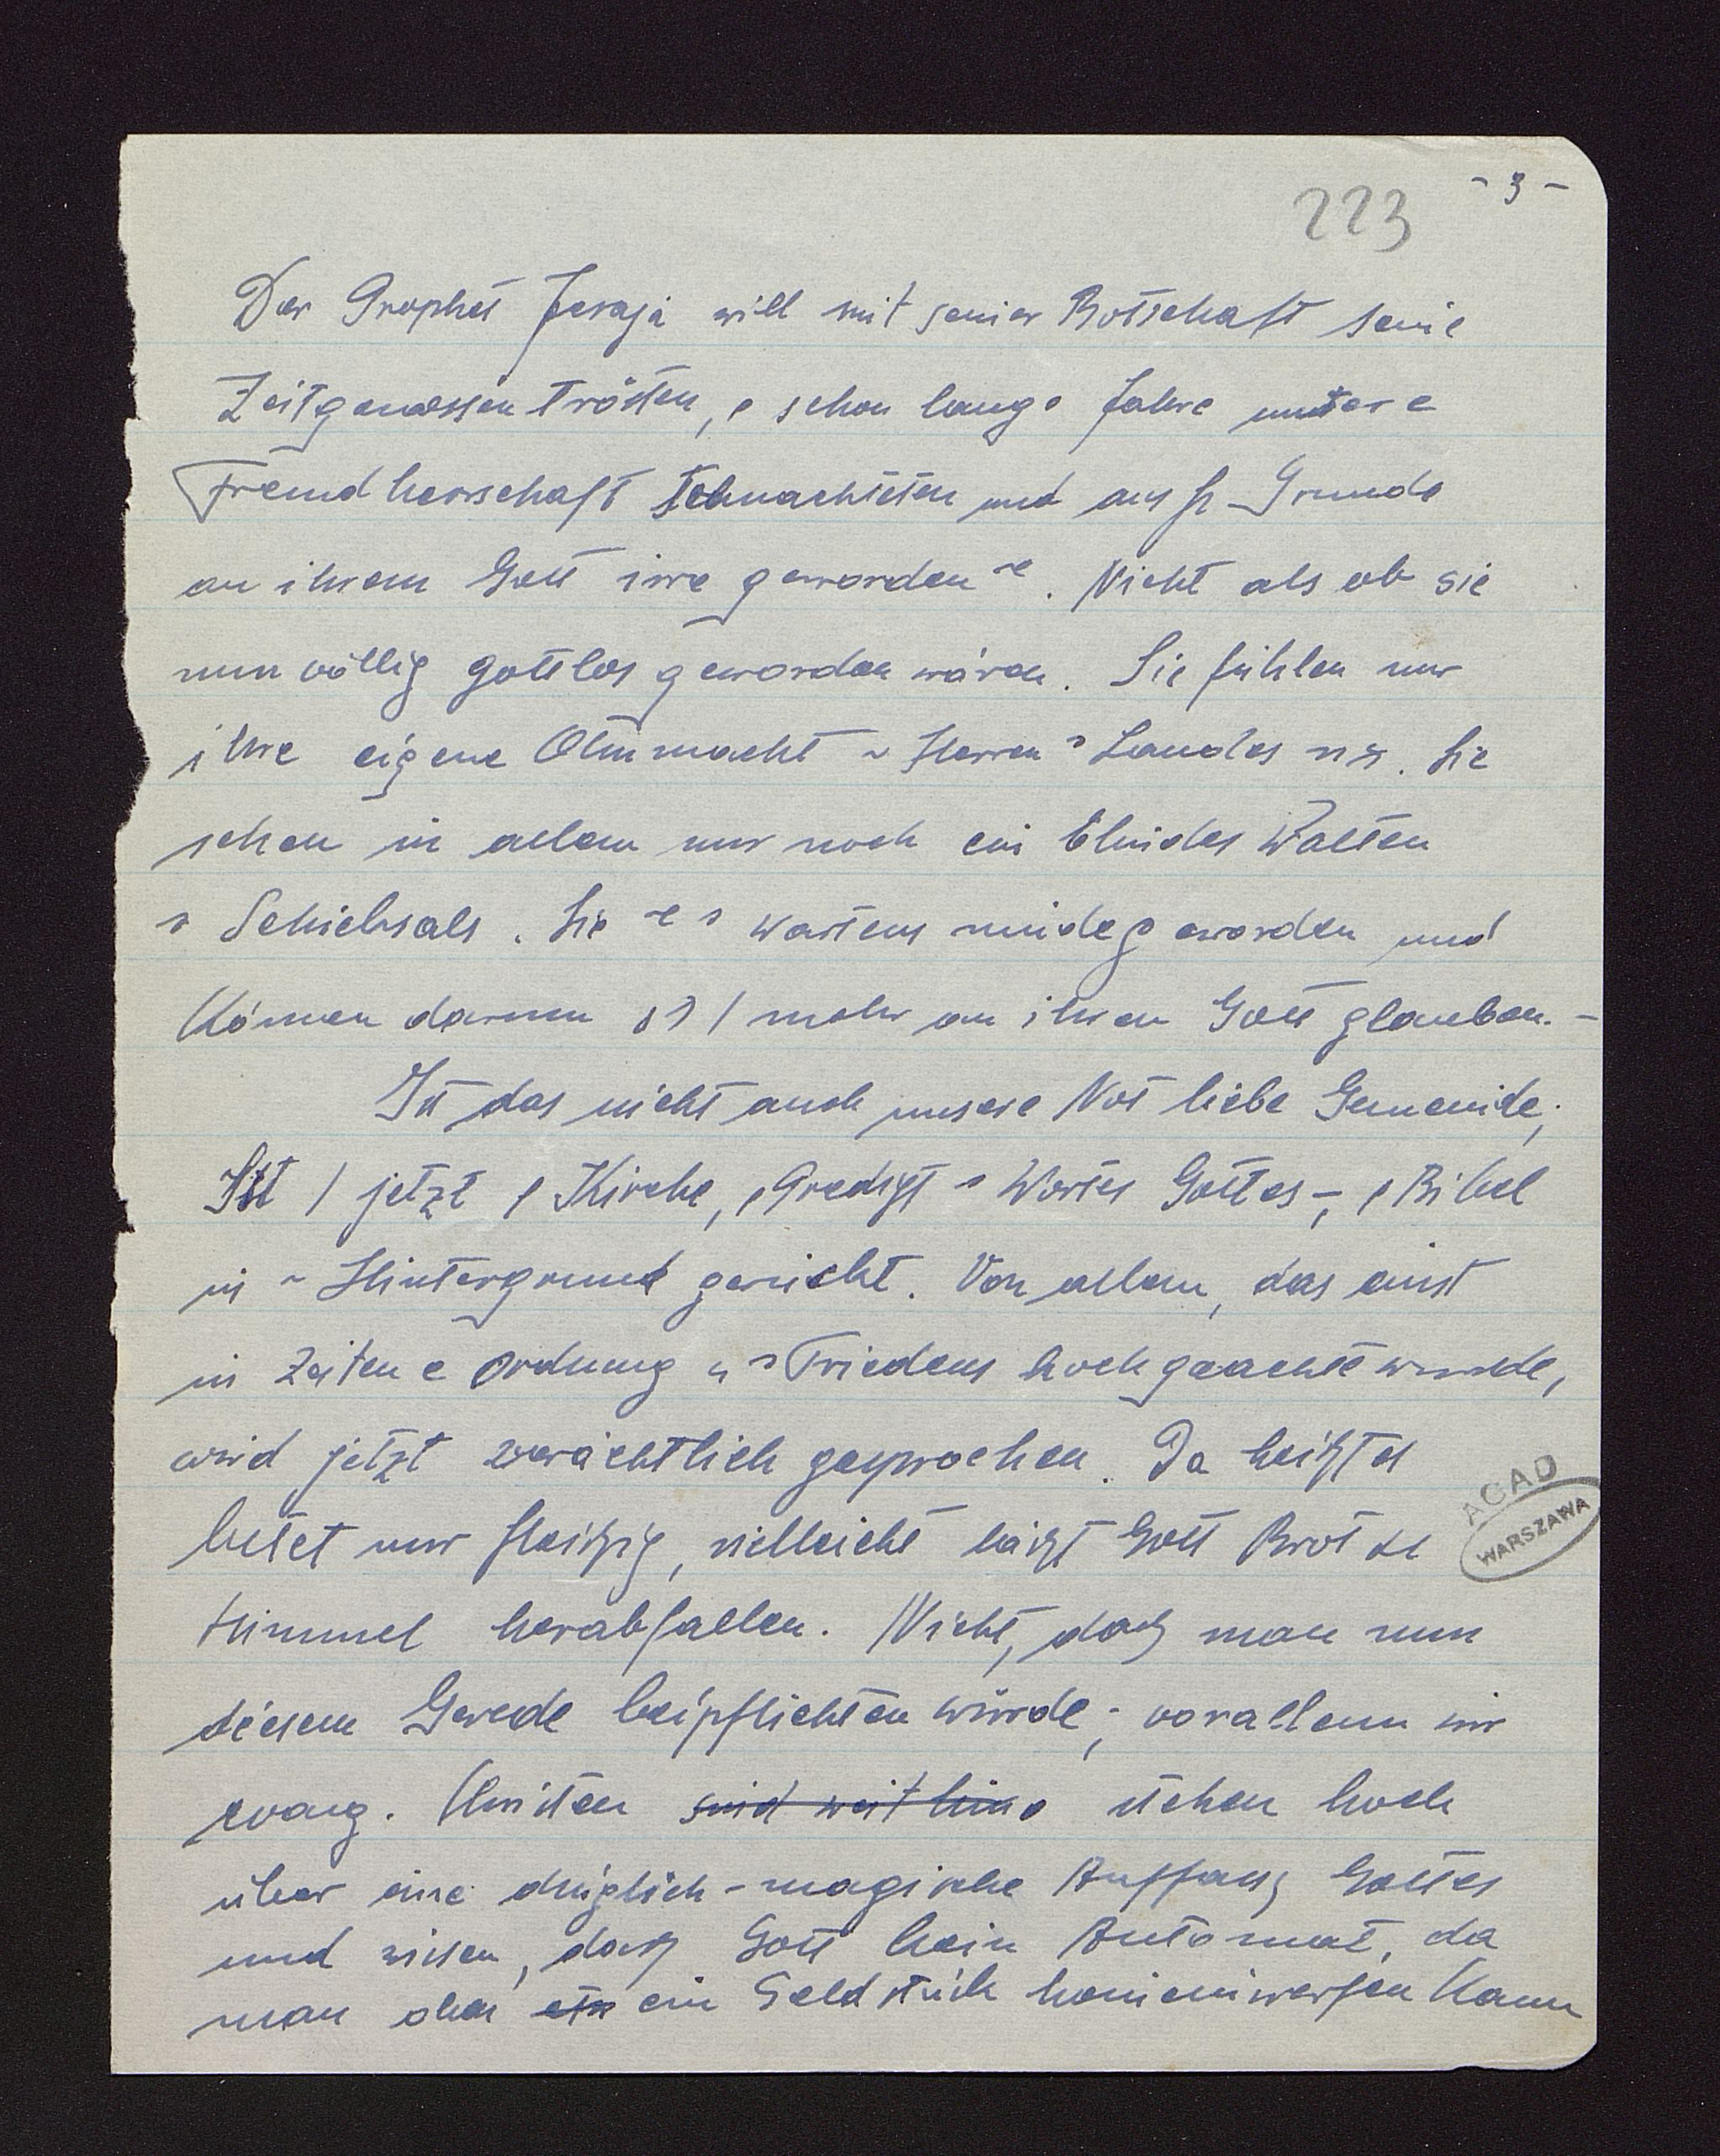 - 3 -
223
Der Prophet Jesaja will mit seiner Botschaft seine
Zeitgenossen trösten, schon lange Jahre unter e
Fremdherrschaft schmachteten und aus Grunde
an ihrem Gott irre geworden. Nicht als ob sie
nun völlig gottlos geworden wären. Sie fühlen nur
ihre eigene Ohnmacht Herren Landes. Sie
sehen in allem nur noch ein blindes Walten
Schicksals. Sie Wartens müde geworden und
können darum mehr an ihren Gott glauben. -
Ist das nicht auch unsere Not liebe Gemeinde;
Ist jetzt Kirche, Predigt Wortes Gottes -, Bibel
in Hintergrund gerückt. Von allem, das einst
in Zeiten e Ordnung u Friedens hochgeachtet wurde,
wird jetzt verächtlich gesprochen. Da heißt es
betet nur fleißig, vielleicht läßt Gott Brot
Himmel herabfallen. Nicht, daß man nun
diesem Gerede beipflichten würde; vorallem wir
evang. Christen sind weithin stehen hoch
über eine dinglich-magische Auffassg Gottes
und wissen, daß Gott kein Automat, da
man oben ein ein Geldstück hineinwerfen kann
AGAD
WARSZAWA